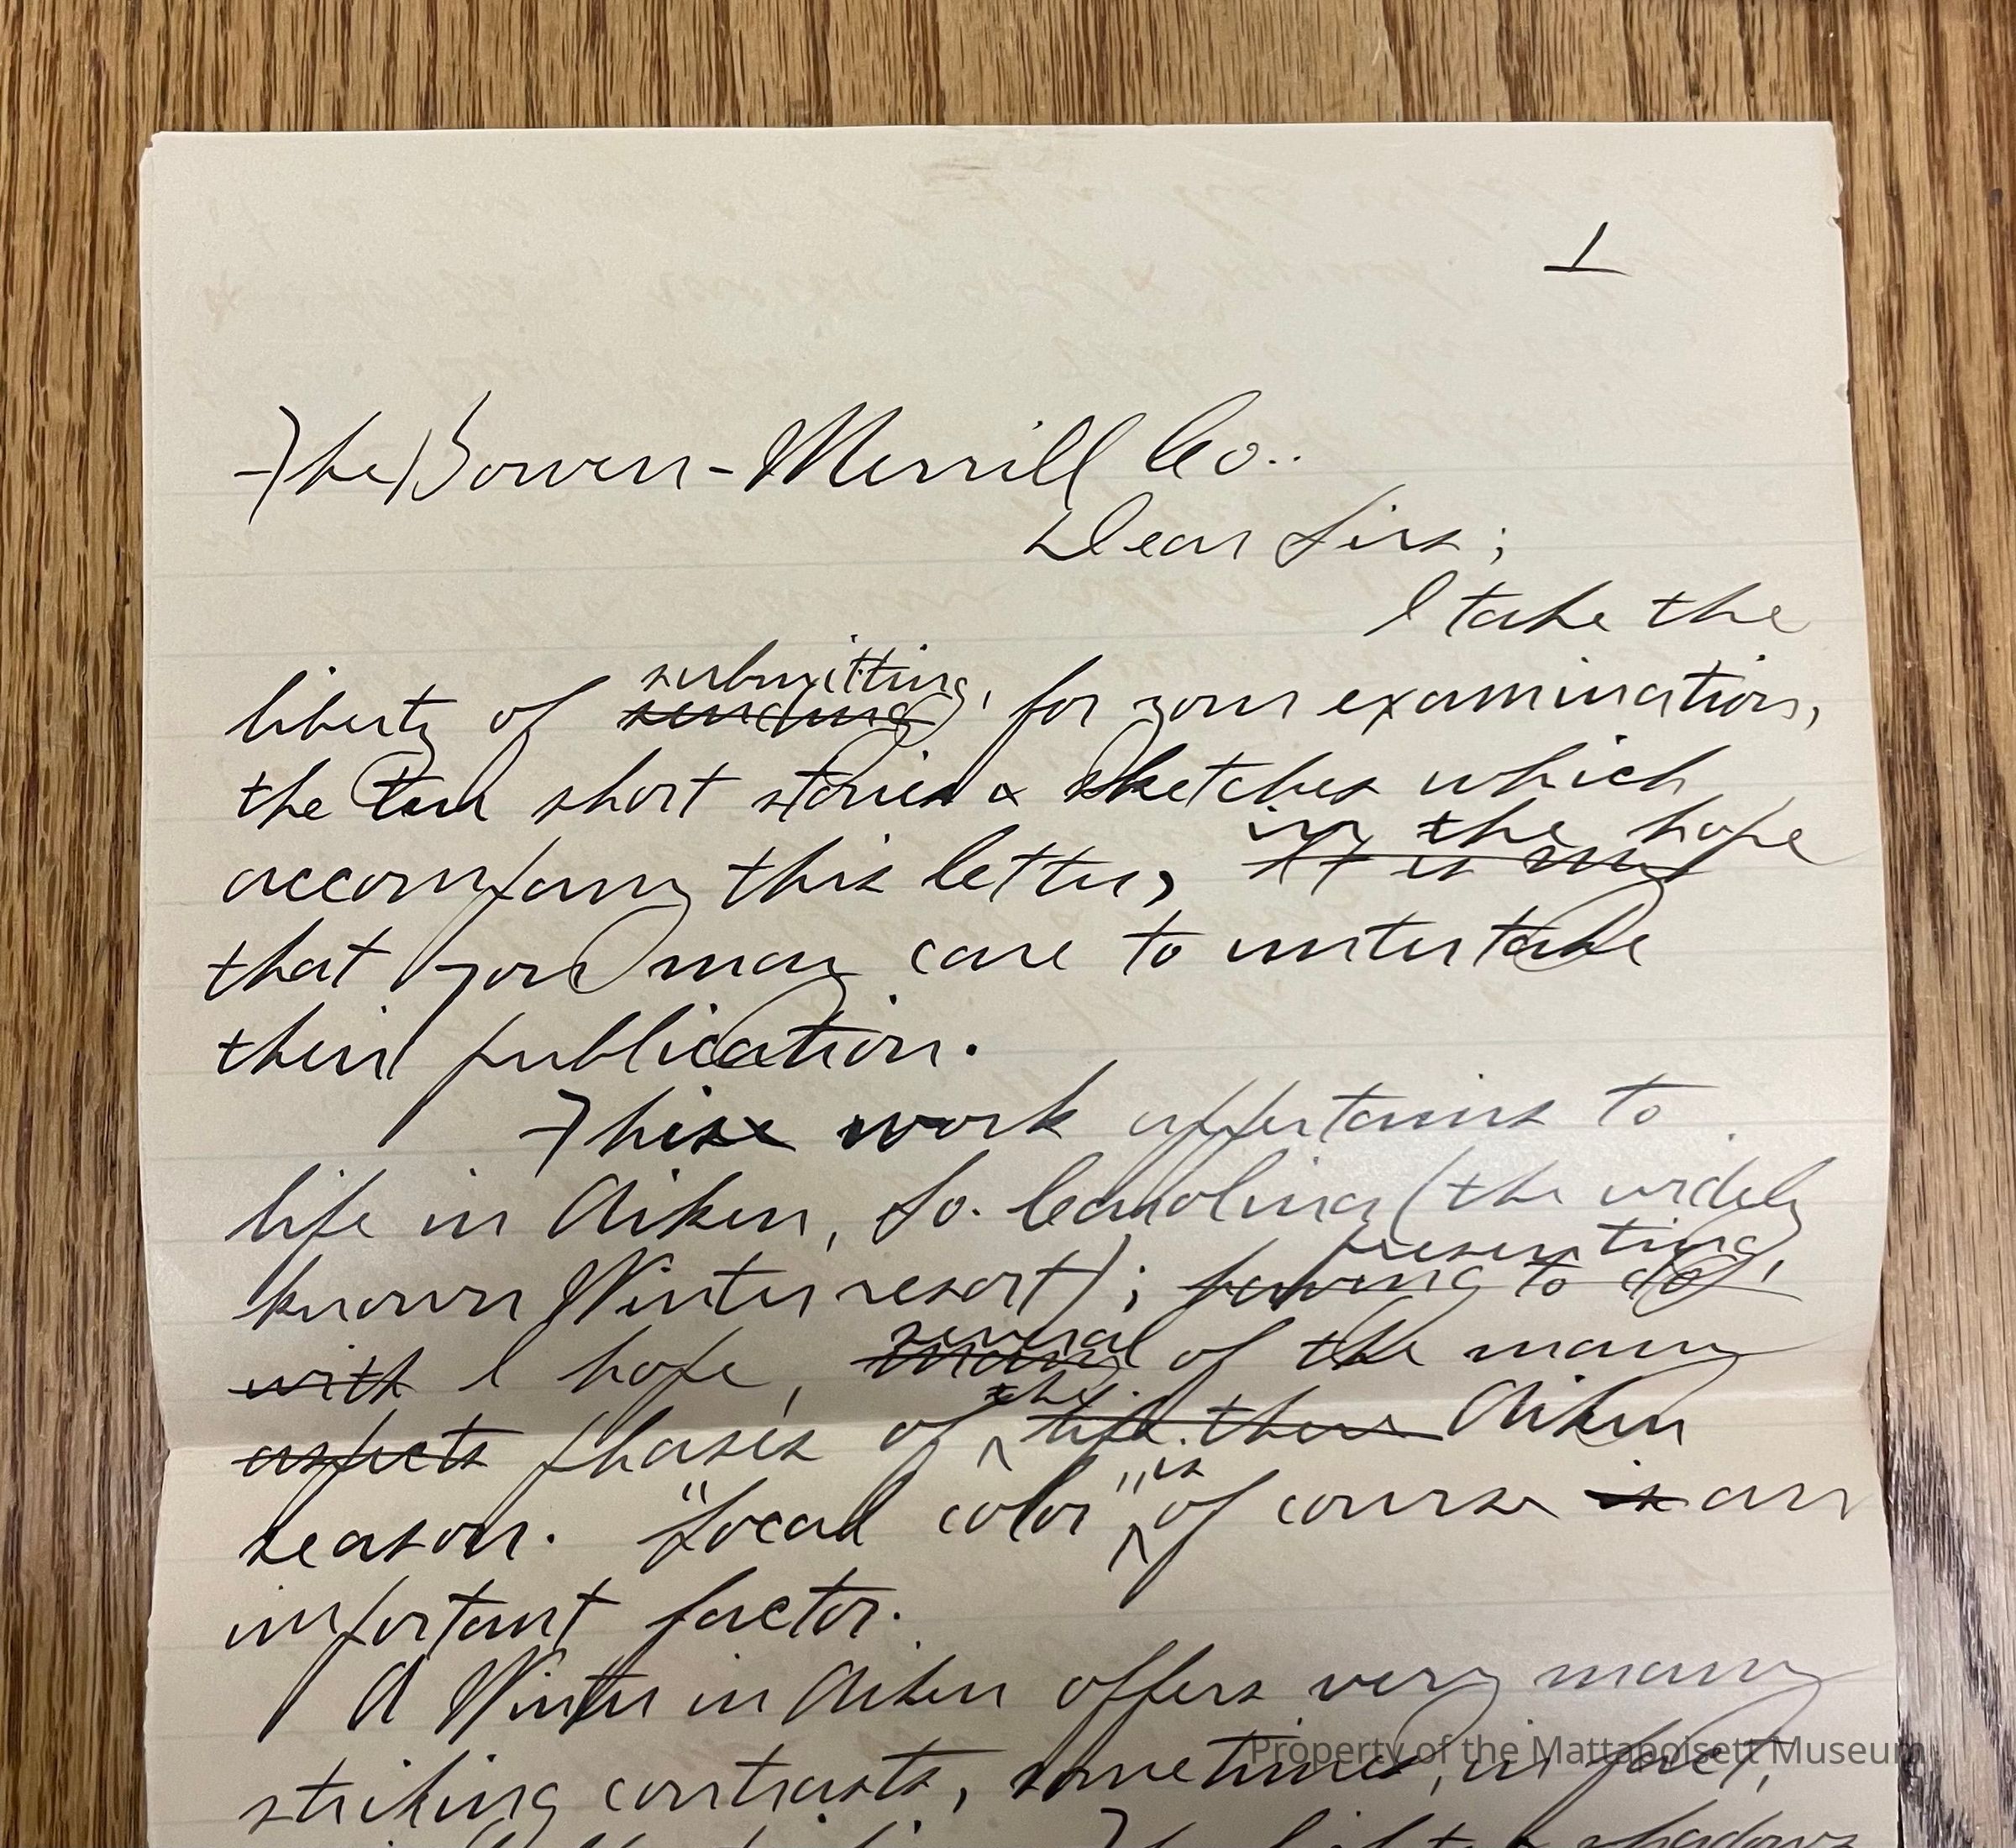 1
The Bowen-Merrill Co..
Dear Sirs;
I take the
submitting,
liberty of sending, for your examination,
the ten short stories & sketches which
in the hope
accompany this letter, It is my
that you may care to untertake
their publication.
This work appertains to
life in Aiken, So. Carolina (the widely
presenting,
known Winter resort); having to do
several
with I hope, many of the many
the
aspects phases of life there Aiken
is
season. "Local color" of course is an
important factor.
A Winter in Aiken offers very many
striking contrasts, sometimes, in fact,
The lights & shadows
Property of the Mattapoisett Museum